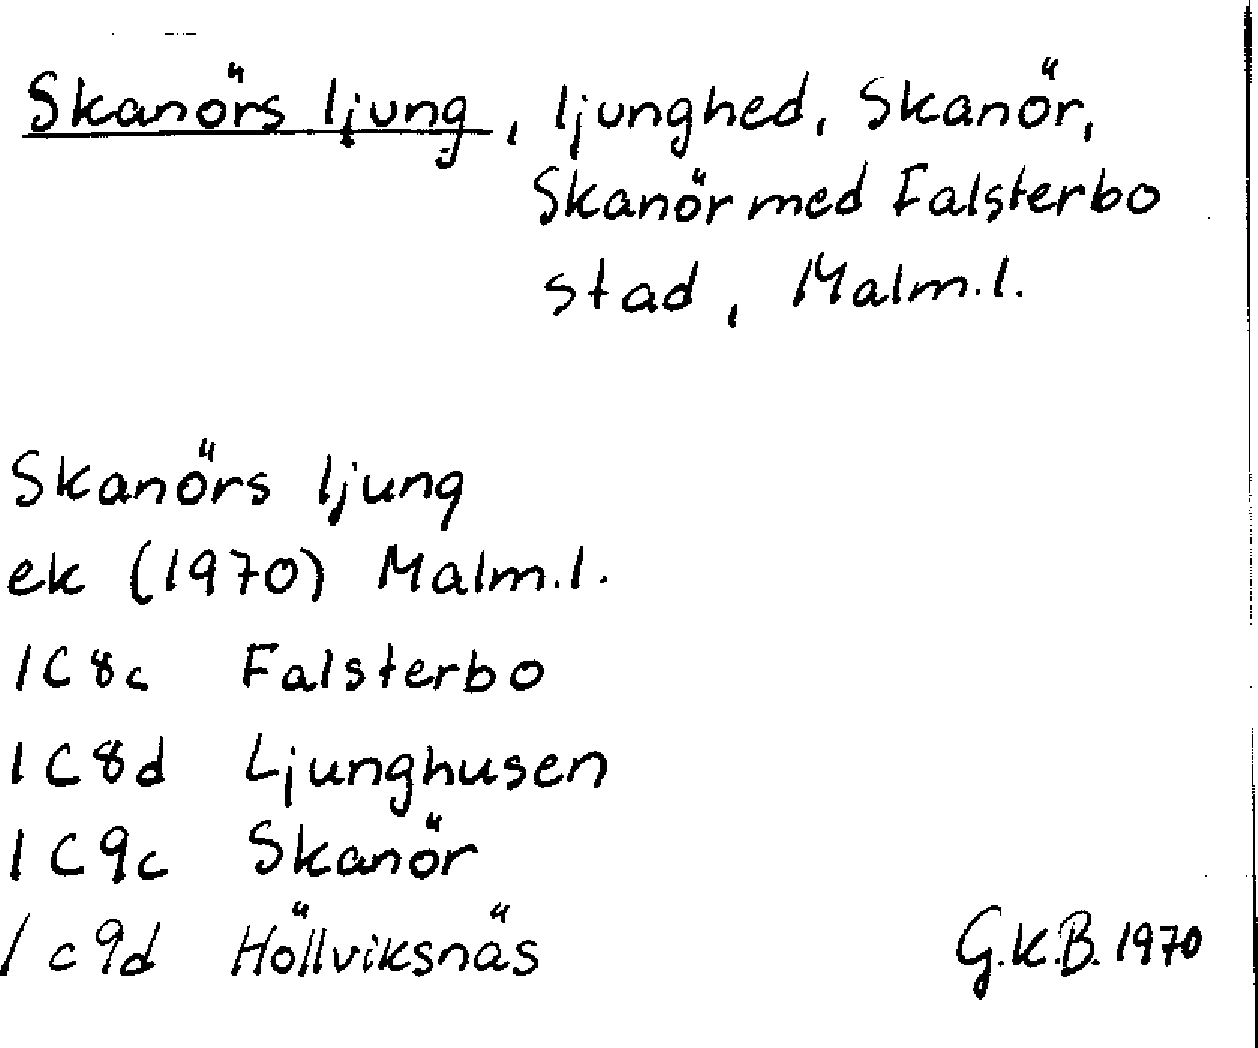 Skanörs ljung, ljunghed, Skanör,
Skanör med Falsterbo
stad, Malm.l.
Skanörs ljung
ek (1970) Malm.l.
1C8c Falsterbo
1C8d Ljunghusen
1C9c Skanör
1c9d Höllviksnäs
G.K.B. 1970